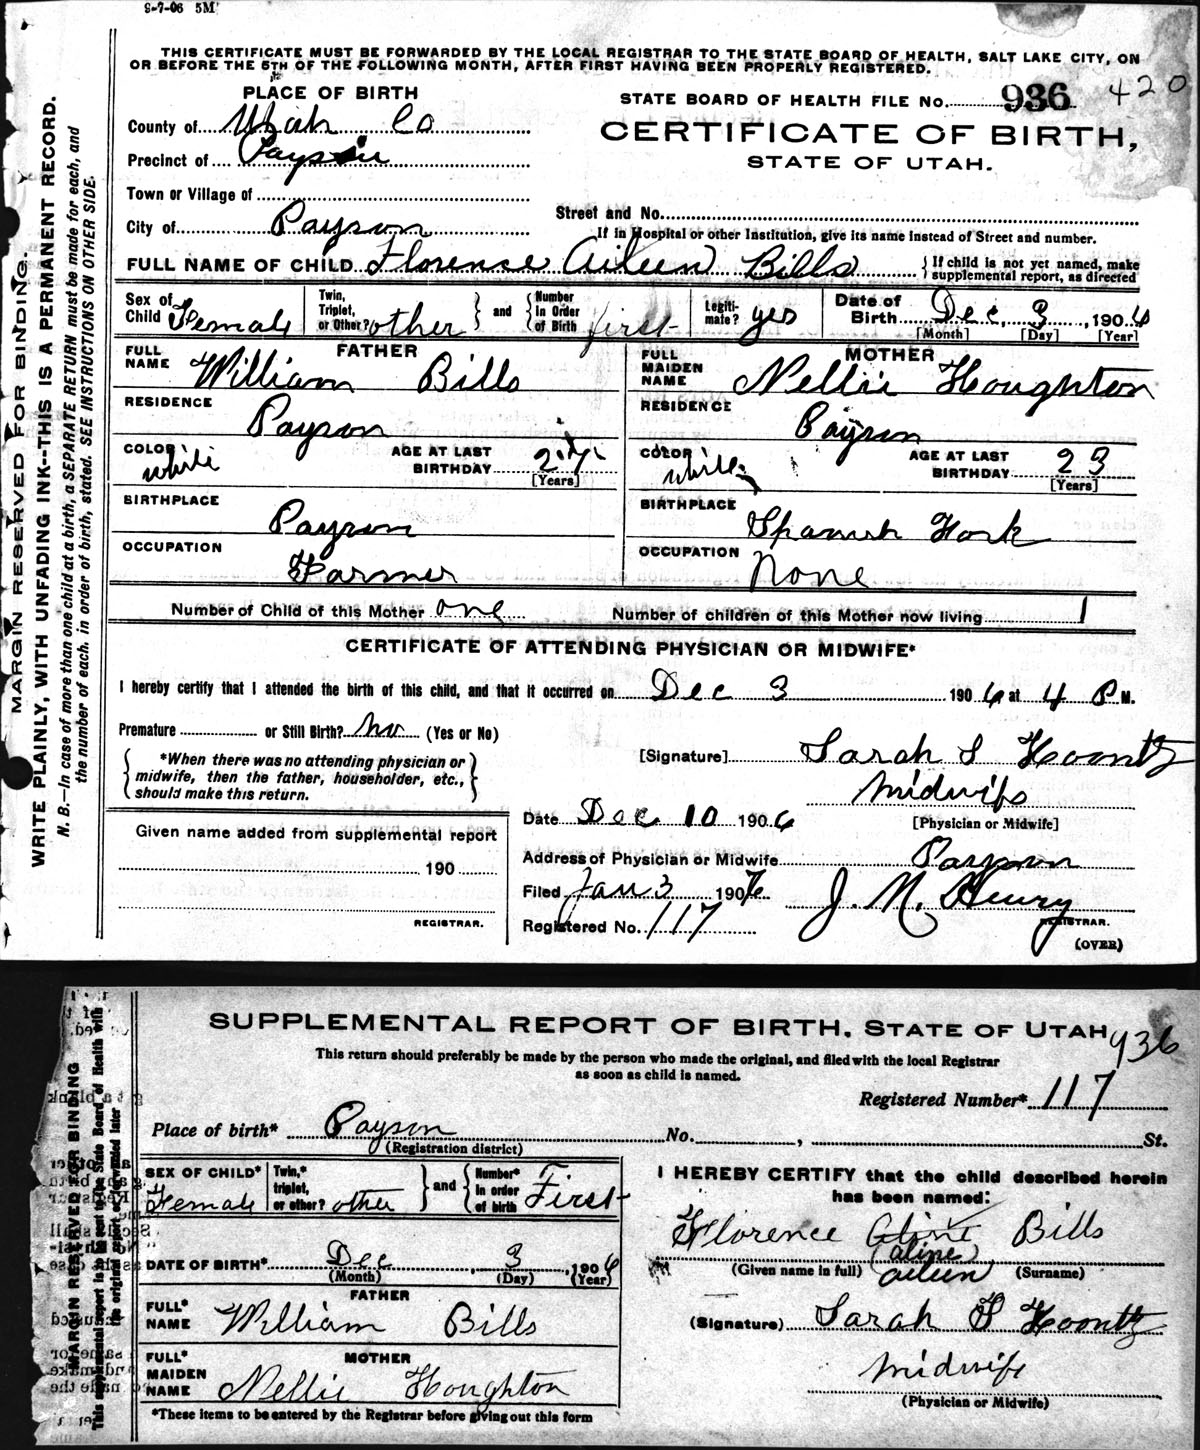 9-7-06 5M
THIS CERTIFICATE MUST BE FORWARDED BY THE LOCAL REGISTRAR TO THE STATE BOARD OF HEALTH, SALT LAKE CITY, ON
OR BEFORE THE 5TH OF THE FOLLOWING MONTH, AFTER FIRST HAVING BEEN PROPERLY REGISTERED.
PLACE OF BIRTH
STATE BOARD OF HEALTH FILE No. 936 420
County of Utah Co
CERTIFICATE OF BIRTH,
Precinct of Payson
STATE OF UTAH.
Town or Village of
Street and No.
City of Payson
If in Hospital or other Institution, give its name instead of Street and number.
FULL NAME OF CHILD Florence Aileen Bills { If child is not yet named, make supplemental report, as directed
Sex of Child Female Twin, Triplet, or Other? other and Number in Order of Birth first Legitimate? yes Date of Birth Dec, 3, 1906
[Month] [Day] [Year]
FATHER MOTHER
FULL NAME William Bills FULL MAIDEN NAME Nellie Houghton
RESIDENCE Payson RESIDENCE Payson
COLOR white AGE AT LAST BIRTHDAY 27 [Years] COLOR white AGE AT LAST BIRTHDAY 23 [Years]
BIRTHPLACE Payson BIRTHPLACE Spanish Fork
OCCUPATION Farmer OCCUPATION None
Number of Child of this Mother one Number of children of this Mother now living 1
CERTIFICATE OF ATTENDING PHYSICIAN OR MIDWIFE*
I hereby certify that I attended the birth of this child, and that it occurred on Dec 3 1906 at 4 P M.
Premature or Still Birth? No (Yes or No)
[Signature] Sarah S Koontz
*When there was no attending physician or
midwife, then the father, householder, etc.,
should make this return.
Midwife
[Physician or Midwife]
Date Dec 10 1906
Given name added from supplemental report
190
REGISTRAR.
Address of Physician or Midwife Payson
Filed Jan 3 1907 J. M. Henry
REGISTRAR.
Registered No. 117
(OVER)
MARGIN RESERVED FOR BINDING.
WRITE PLAINLY, WITH UNFADING INK--THIS IS A PERMANENT RECORD.
N. B.—In case of more than one child at a birth, a SEPARATE RETURN must be made for each, and
the number of each, in order of birth, stated. SEE INSTRUCTIONS ON OTHER SIDE.
SUPPLEMENTAL REPORT OF BIRTH, STATE OF UTAH 936
This return should preferably be made by the person who made the original, and filed with the local Registrar
as soon as child is named.
Registered Number* 117
Place of birth* Payson No. , St.
(Registration district)
SEX OF CHILD* Female Twin,* triplet, or other? other and Number* in order of birth First
I HEREBY CERTIFY that the child described herein
has been named:
Florence Aline Bills
(aline)
(Given name in full) aileen (Surname)
DATE OF BIRTH* Dec 3, 1906
(Month) (Day) (Year)
FATHER
FULL* NAME William Bills
(Signature) Sarah S Koontz
Midwife
(Physician or Midwife)
MOTHER
FULL* MAIDEN NAME Nellie Houghton
*These items to be entered by the Registrar before giving out this form
MARGIN RESERVED FOR BINDING